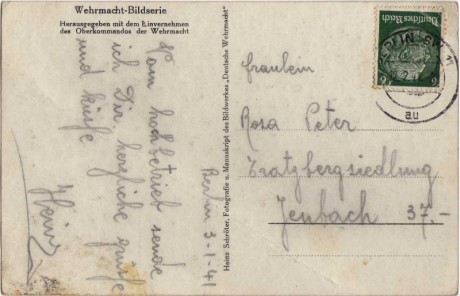 Wehrmacht-Bildserie
Herausgegeben mit dem Einvernehmen
des Oberkommandos der Wehrmacht
Berlin 3-1-41
Vom hochbetrieb sende
ich Dir herzliche grüße
und küsse
Heinz
Heinz Schröter, Fotografie u. Manuskript des Bildwerkes „Deutsche Wehrmacht"
Deutsches Reich
6
BERLIN SW 11
au
fraulein
Rosa Peter
Tratzbergsiedlung
Jenbach 37.-